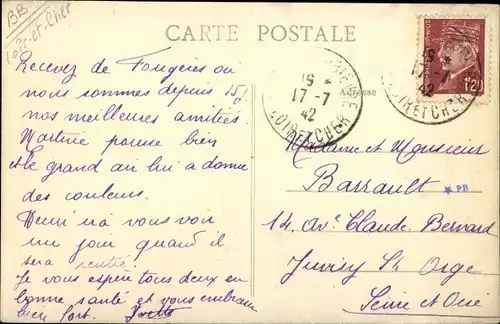 BB
Loir-et-Cher
CARTE POSTALE
Recevez de Fougères où
nous sommes depuis 15j
nos meilleures amitiés.
Martine pousse bien
et le grand air lui a donné
des couleurs.
Henri ira vous voir
un jour quand il
sera rentré
Je vous espère tous deux en
bonne santé et vous embrasse
bien fort. Yvette
19 *
17-7
42
LOIR ET CHER
Adresse
19 *
17-7
42
LOIR ET CHER
1f20
Madame et Monsieur
Barrault
* PB
14, Av. Claude Bernard
Juvisy S/ Orge
Seine et Oise